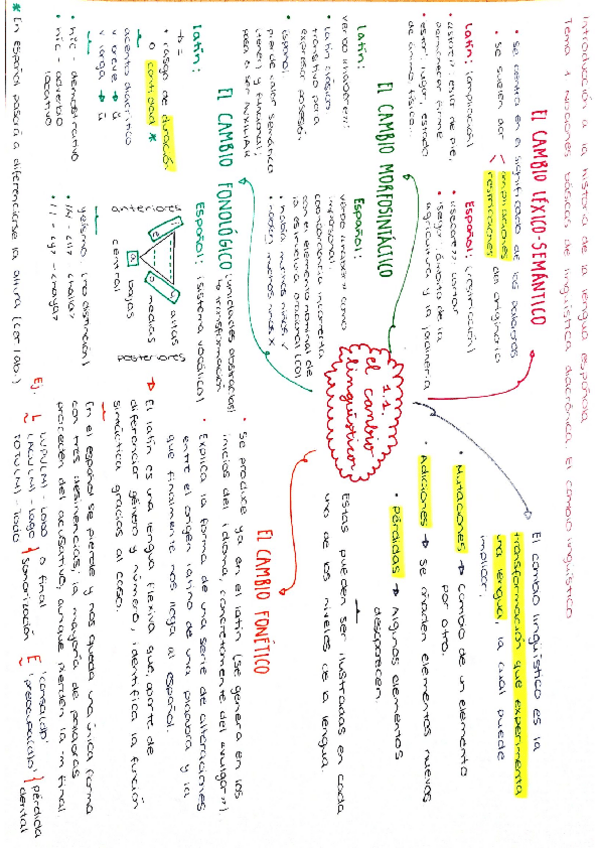 Introducción a la historia de la lengua española
Tema 1. Nociones básicas de lingüística diacrónica. El cambio lingüístico
1.1.
el cambio
lingüístico
El cambio lingüístico es la
transformación que experimenta
una lengua, la cual puede
implicar:
• Mutaciones → Cambio de un elemento
por otro.
• Adiciones → Se añaden elementos nuevos
• Pérdidas → Algunos elementos
desaparecen.
Estas pueden ser ilustradas en cada
uno de los niveles de la lengua.
EL CAMBIO LÉXICO-SEMÁNTICO
• se centra en el significado de las palabras
• se suelen dar < ampliaciones
restricciones del originario
Latín: (ampliación)
"estar": estar de pie,
permanecer firme
• estar: lugar, estado
de ánimo, físico...
Español: (restricción)
• "secare" = cortar
• segar: ámbito de la
agricultura y la jardinería
EL CAMBIO MORFOSINTÁCTICO
Latín:
verbo "habere":
• latín clásico:
transitivo para
expresar posesión
• español:
pierde valor semántico
(tener) y funcional;
pasa a ser AUXILIAR
Español:
verbo "haber" como
impersonal:
concordancia incorrecta
con el elemento nominal de
la estructura oracional (CD)
• había muchos niños ✓
• habían muchos niños x
EL CAMBIO FONOLÓGICO
(unidades opositivas)
↳ transformación
Latín:
• rasgo de duración
o cantidad *
acento diacrítico
v breve → ŭ
v larga → ū
• hic - demostrativo
• hīc - adverbio
locativo
Español: (sistema vocálico)
anteriores
i
e
a
o
u
altas
medias
bajas
central
posteriores
• yeísmo: (no distinción)
* En español pasará a diferenciarse la altura
EL CAMBIO FONÉTICO
• Se produce ya en el latín (se genera en los
inicios del idioma, concretamente del "vulgar").
• Explica la forma de una serie de alteraciones
entre el origen latino de una palabra y la
que finalmente nos llega al español.
→ El latín es una lengua flexiva que, aparte de
diferenciar género y número, identifica la función
sintáctica gracias al caso.
En el español se pierde y nos queda una única forma
con tres desinencias; la mayoría de palabras
proceden del acusativo, aunque pierden la m final
Ej.
LUPU(M) - lobo
LACU(M) - lago
TOTU(M) - todo
o final
sonorización
pérdida
dental